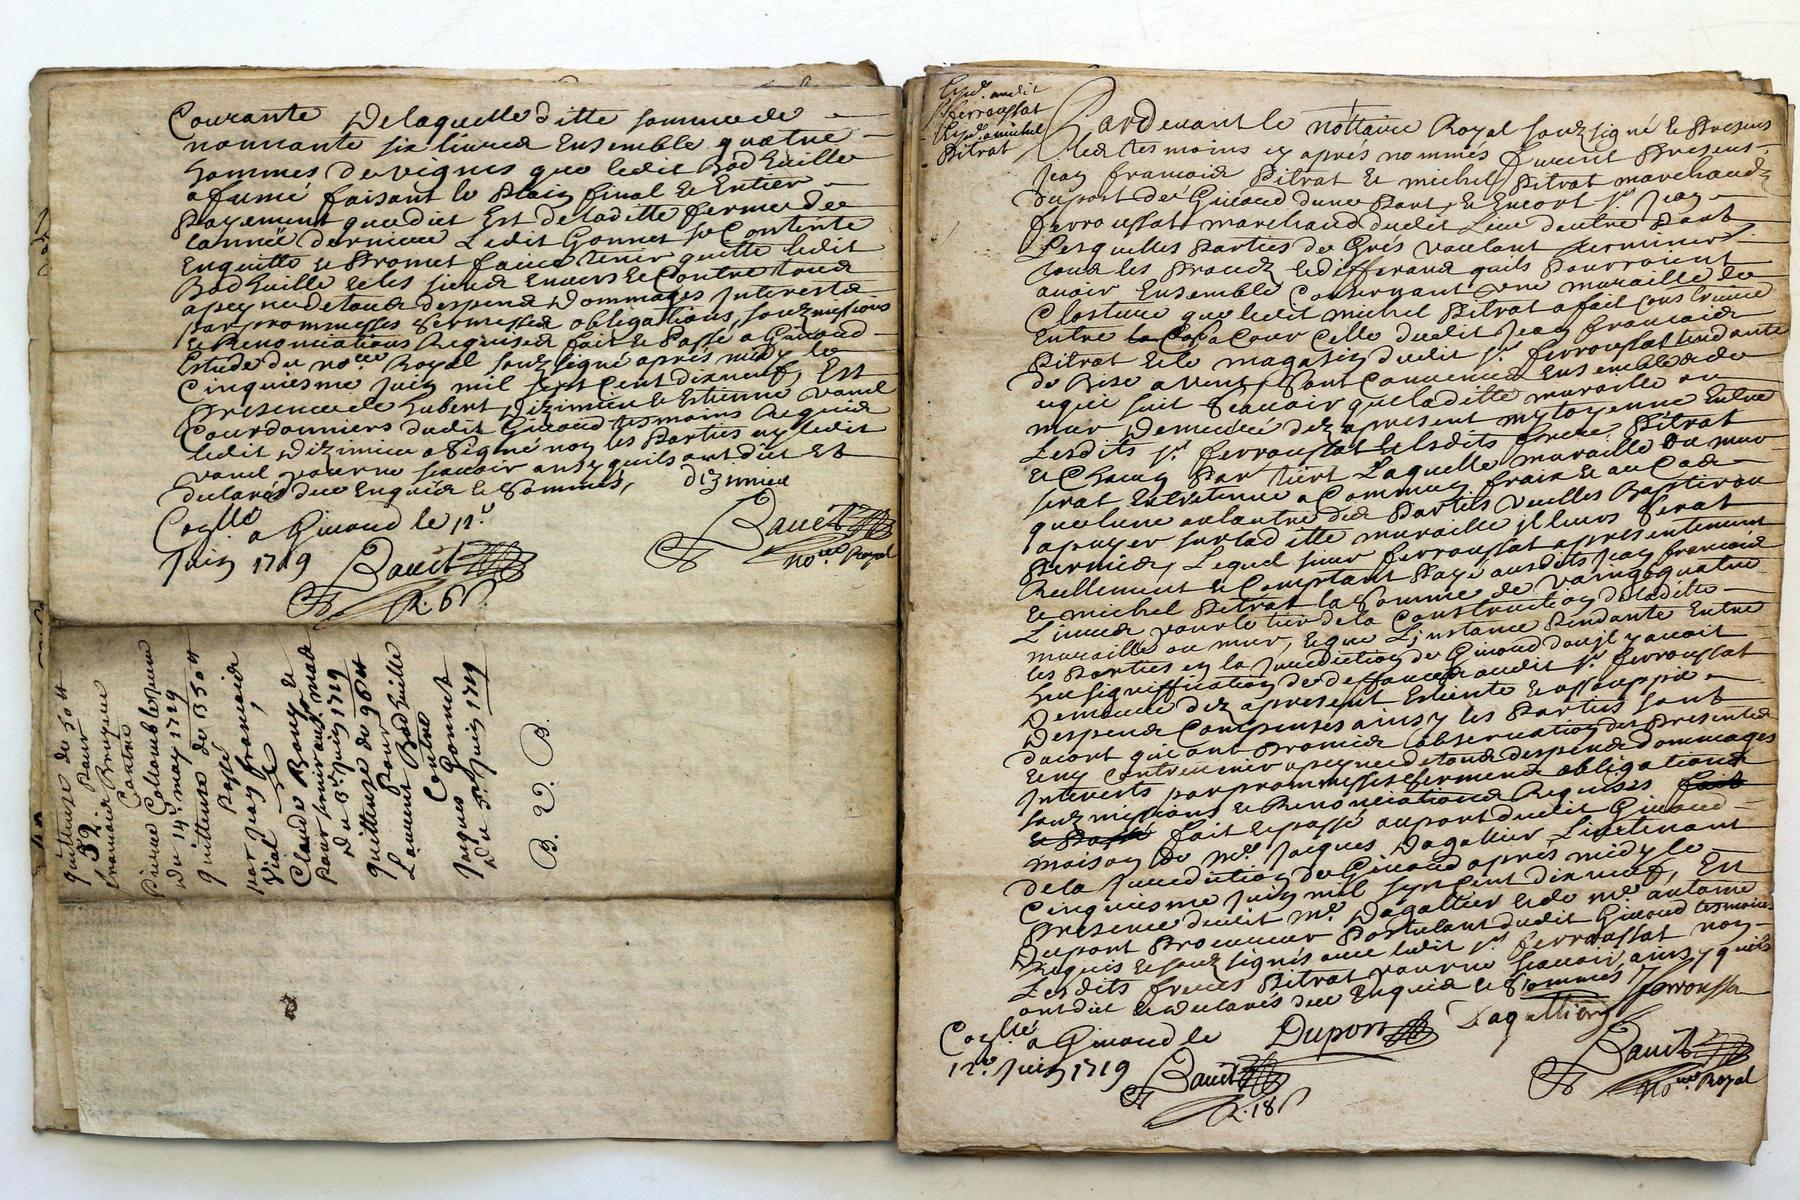 Courante Delaquelle ditte somme de
nonnante six livres Ensemble quatre
hommes de vignes que ledit Badhuille
a fumé faisant le Plain final & Entier
Payement que dict Est de laditte ferme de
lannéé derniere Ledit Gonnet se Contente
Enquitte & Promet faire tenir quitte ledit
Badhuille & les siens Envers & Contre tous
apeyne de tous despens Dommages Interests
par prommesses Sermesses obligations, soubzmissions
& Renonciations Requises fait & Passé a Givaud
Estude du no.re Royal soubzsigné aprés midy le
Cinquiesme Juin mil sept Cent dixneuf, En
Presence de hubert Dizimieu & Estienne
Courdonniers dudit Givaud tesmoins Requis
ledit Dizimieu a Signé non les Parties ny ledit
pour ne scavoir ainsy quils ont dict &
declarés de ce Enquis & Sommés, dizimieu
a Givaud le 12.e
Juin 1719
no.re Royal
R. 6
quittense de 50 tt
Pour
francois
Contre
Pierre
Du 14.e may 1719
quittense de 350 tt
Passé
par Jean francois
Vial
Claude &
Du 3.e Juin 1719
quittense de 96 tt
Pour
Laurent Badhuille
Contre
Jaques Gonnet
Du 5.e Juin 1719
B. V. B.
Exp.é audit
s.r ferroussat
Exp.é a michel
Pitrat
Pardevant le nottaire Royal soubzsigné & Presens
les tesmoins cy aprés nommés furent Presens
Jean francois Pitrat & michel Pitrat marchands
Duport de Givaud dune Part, & Encort s.r Jean
ferroussat marchand dudit Lieu dautre Part
Lesquelles Parties de Grés voulant terminer
tous les & differans quils Pourroient
avoir Ensemble Consernant une muraille de
Closture que ledit michel Pitrat a fait Construire
Entre la Cour Celle dudit Jean francois
Pitrat & le magasin dudit s.r ferroussat tendante
de Bise a vent, Sont Convenus Ensemble de
ce qui suit Scavoir que laditte muraille ou
mur Demeure dez apresent mytoyenne Entre
Lesdits s.r ferroussat & lesdits freres Pitrat
& Chacun Par tiert Laquelle muraille ou mur
serat Entretenue a Communs fraix & au Cas
que lune ou lautre des Parties veuilles Bastir ou
apuyer sur laditte muraille il leurs serat
Permis, Lequel sieur ferroussat a presentement
Reellement & Comptant Payé ausdits Jean francois
& michel Pitrat la Somme de vaingtquatre
Livres pour le tier de la Construction de laditte
muraille ou mur, & que Linstance Pendante Entre
les Parties en la Jurediction de Givaud dou il y avoit
Eu signiffication de deffances audit s.r ferroussat
Demeure dez apresent Esteinte & assouppie
Despens Compenses ainsy les Parties sont
dacort qui ont Promis lobservation des Presentes
& ny Contrevenir apeyne de tous despens dommages
Interests par prommesses Serments obligations
soubzmissions & Renonciations Requises fait
& Passé fait & passé au port dudit Givaud
maison de m.e Jacques Dagallier Lieutenant
de la Jurediction de Givaud aprés midy le
Cinquiesme Juin mil sept Cent dixneuf, En
Presence dudit m.e Dagallier & de m.e antoine
Dupont Procureur Postulant dudit Givaud tesmoins
Requis & soubzsignés avec ledit s.r ferroussat non
Lesdits freres Pitrat pour ne scavoir ainsy quils
ont dict & declarés de ce Enquis & Sommés / J ferroussa
a Givaud le Dupon Dagallier
12.e Juin 1719
no.re Royal
R. 18